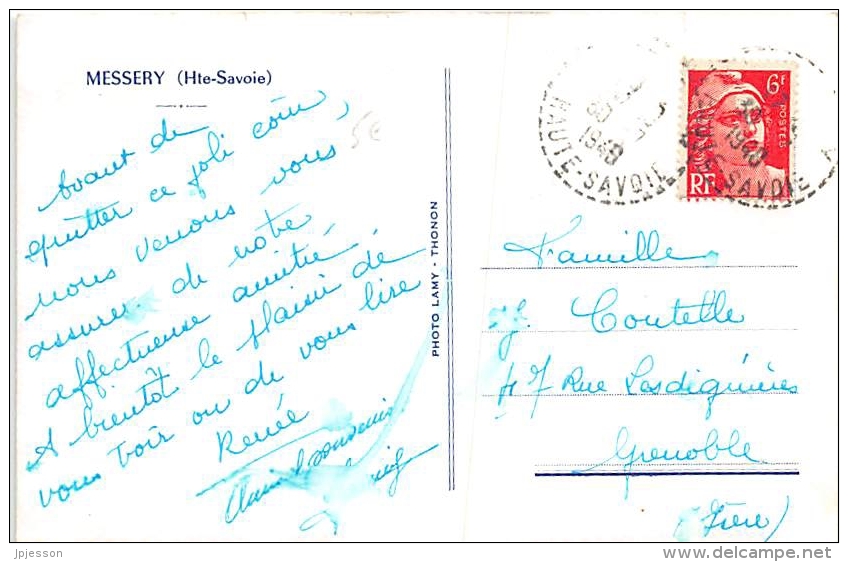 MESSERY (Hte-Savoie)
5€
Avant de
quitter ce joli coin,
nous venons vous
assurer de notre
affectueuse amitié,
A bientôt le plaisir de
vous voir ou de vous lire
Renée
souvenir
PHOTO LAMY - THONON
HAUTE-SAVOIE
1948
6F
POSTES
RF
1948
SAVOIE
Famille
J. Coutelle
47 Rue Lesdiguières
Grenoble
(Isère)
jpjesson
delcampe.net